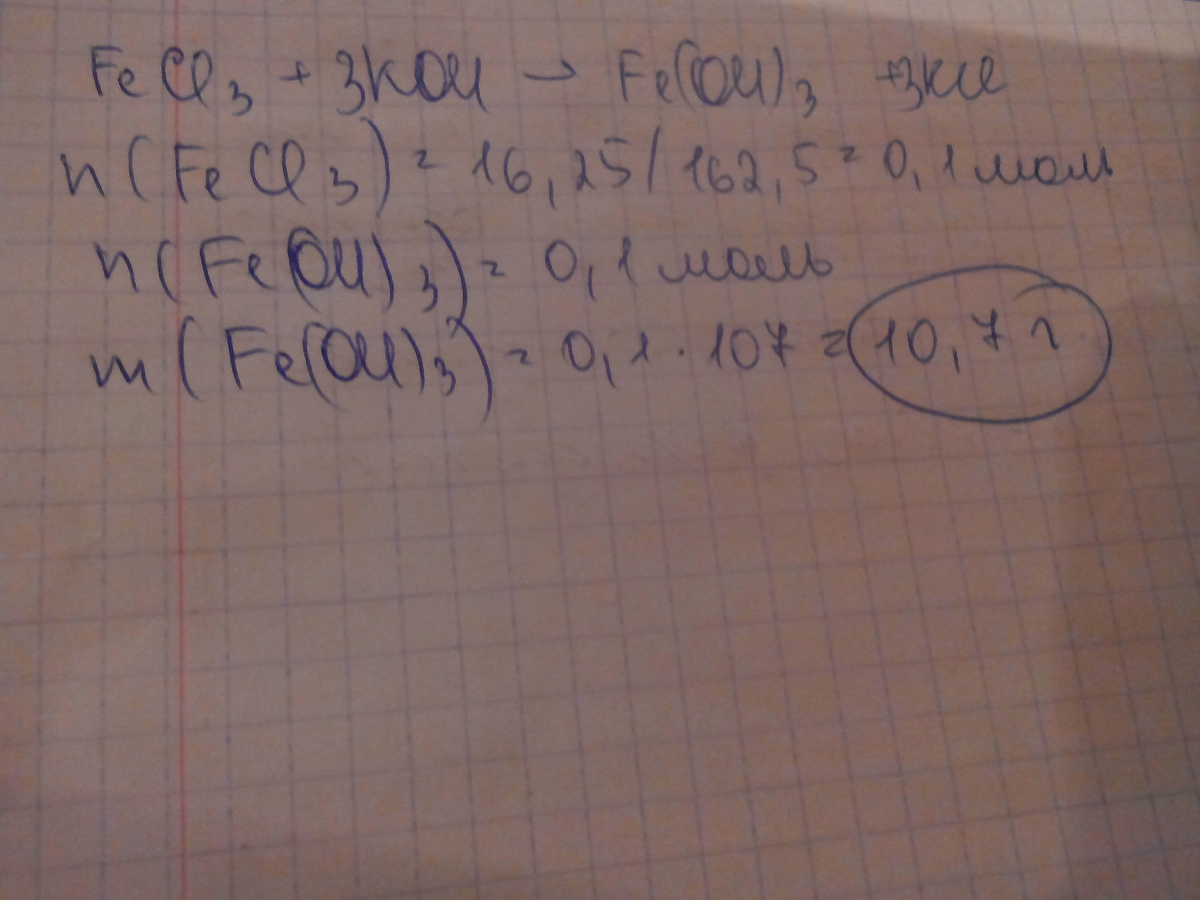 FeCl3 + 3KOH → Fe(OH)3 +3KCl
n(FeCl3) = 16,25/162,5 = 0,1 моль
n(Fe(OH)3) = 0,1 моль
m(Fe(OH)3) = 0,1 · 107 = 10,7 г